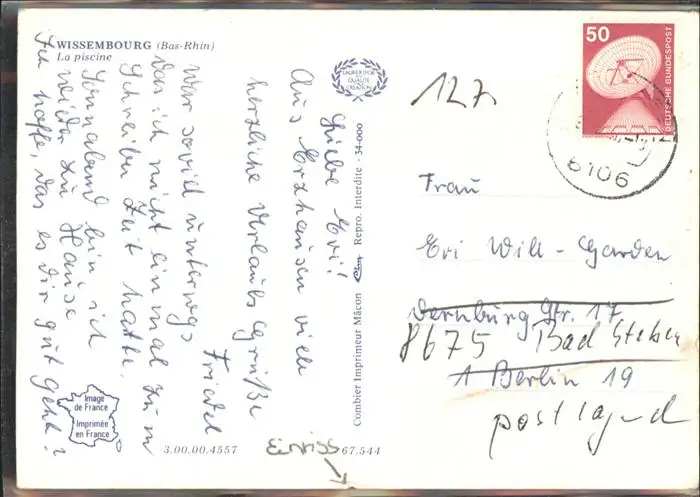 WISSEMBOURG (Bas-Rhin)
La piscine
LAURIER D'OR
DE LA
QUALITE
CREATION
Liebe Evi!
Aus Erzhausen viele
herzliche Urlaubsgrüße
Friedel
War soviel unterwegs
das ich nicht einmal zum
Schreiben Zeit hatte.
Sonnabend bin ich
wieder zu Hause
Ich hoffe, das es dir gut geht?
Combier Imprimeur Mâcon Repro. Interdite - 34-000
Image
de France
Imprimée
en France
3.00.00.4557
67.544
Einriss
127
50
DEUTSCHE BUNDESPOST
6106
Frau
Evi Will-Garden
Dernburg Str. 17
8675 Bad Steben
1 Berlin 19
postlagernd